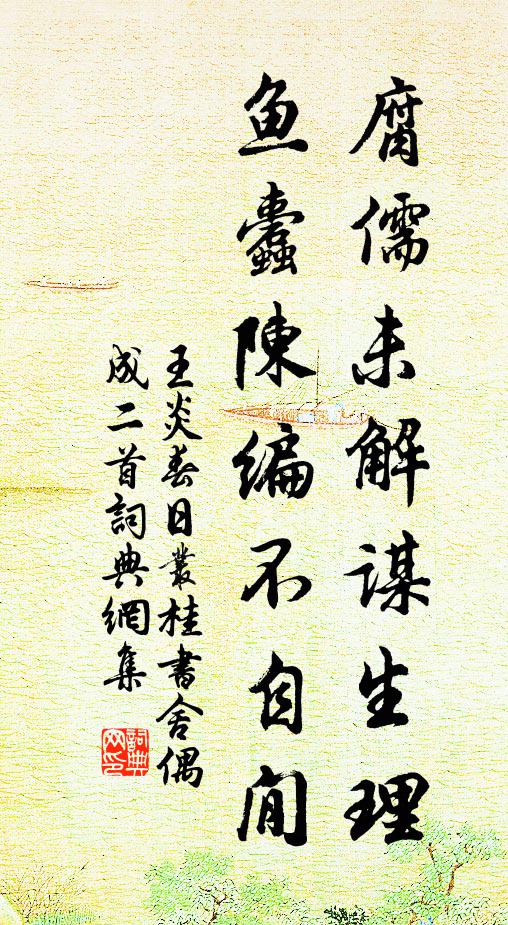 腐儒未解謀生理
魚蠹陳編不自閒
王炎春日叢桂書舍偶
成二首詞典網集
詞典網印